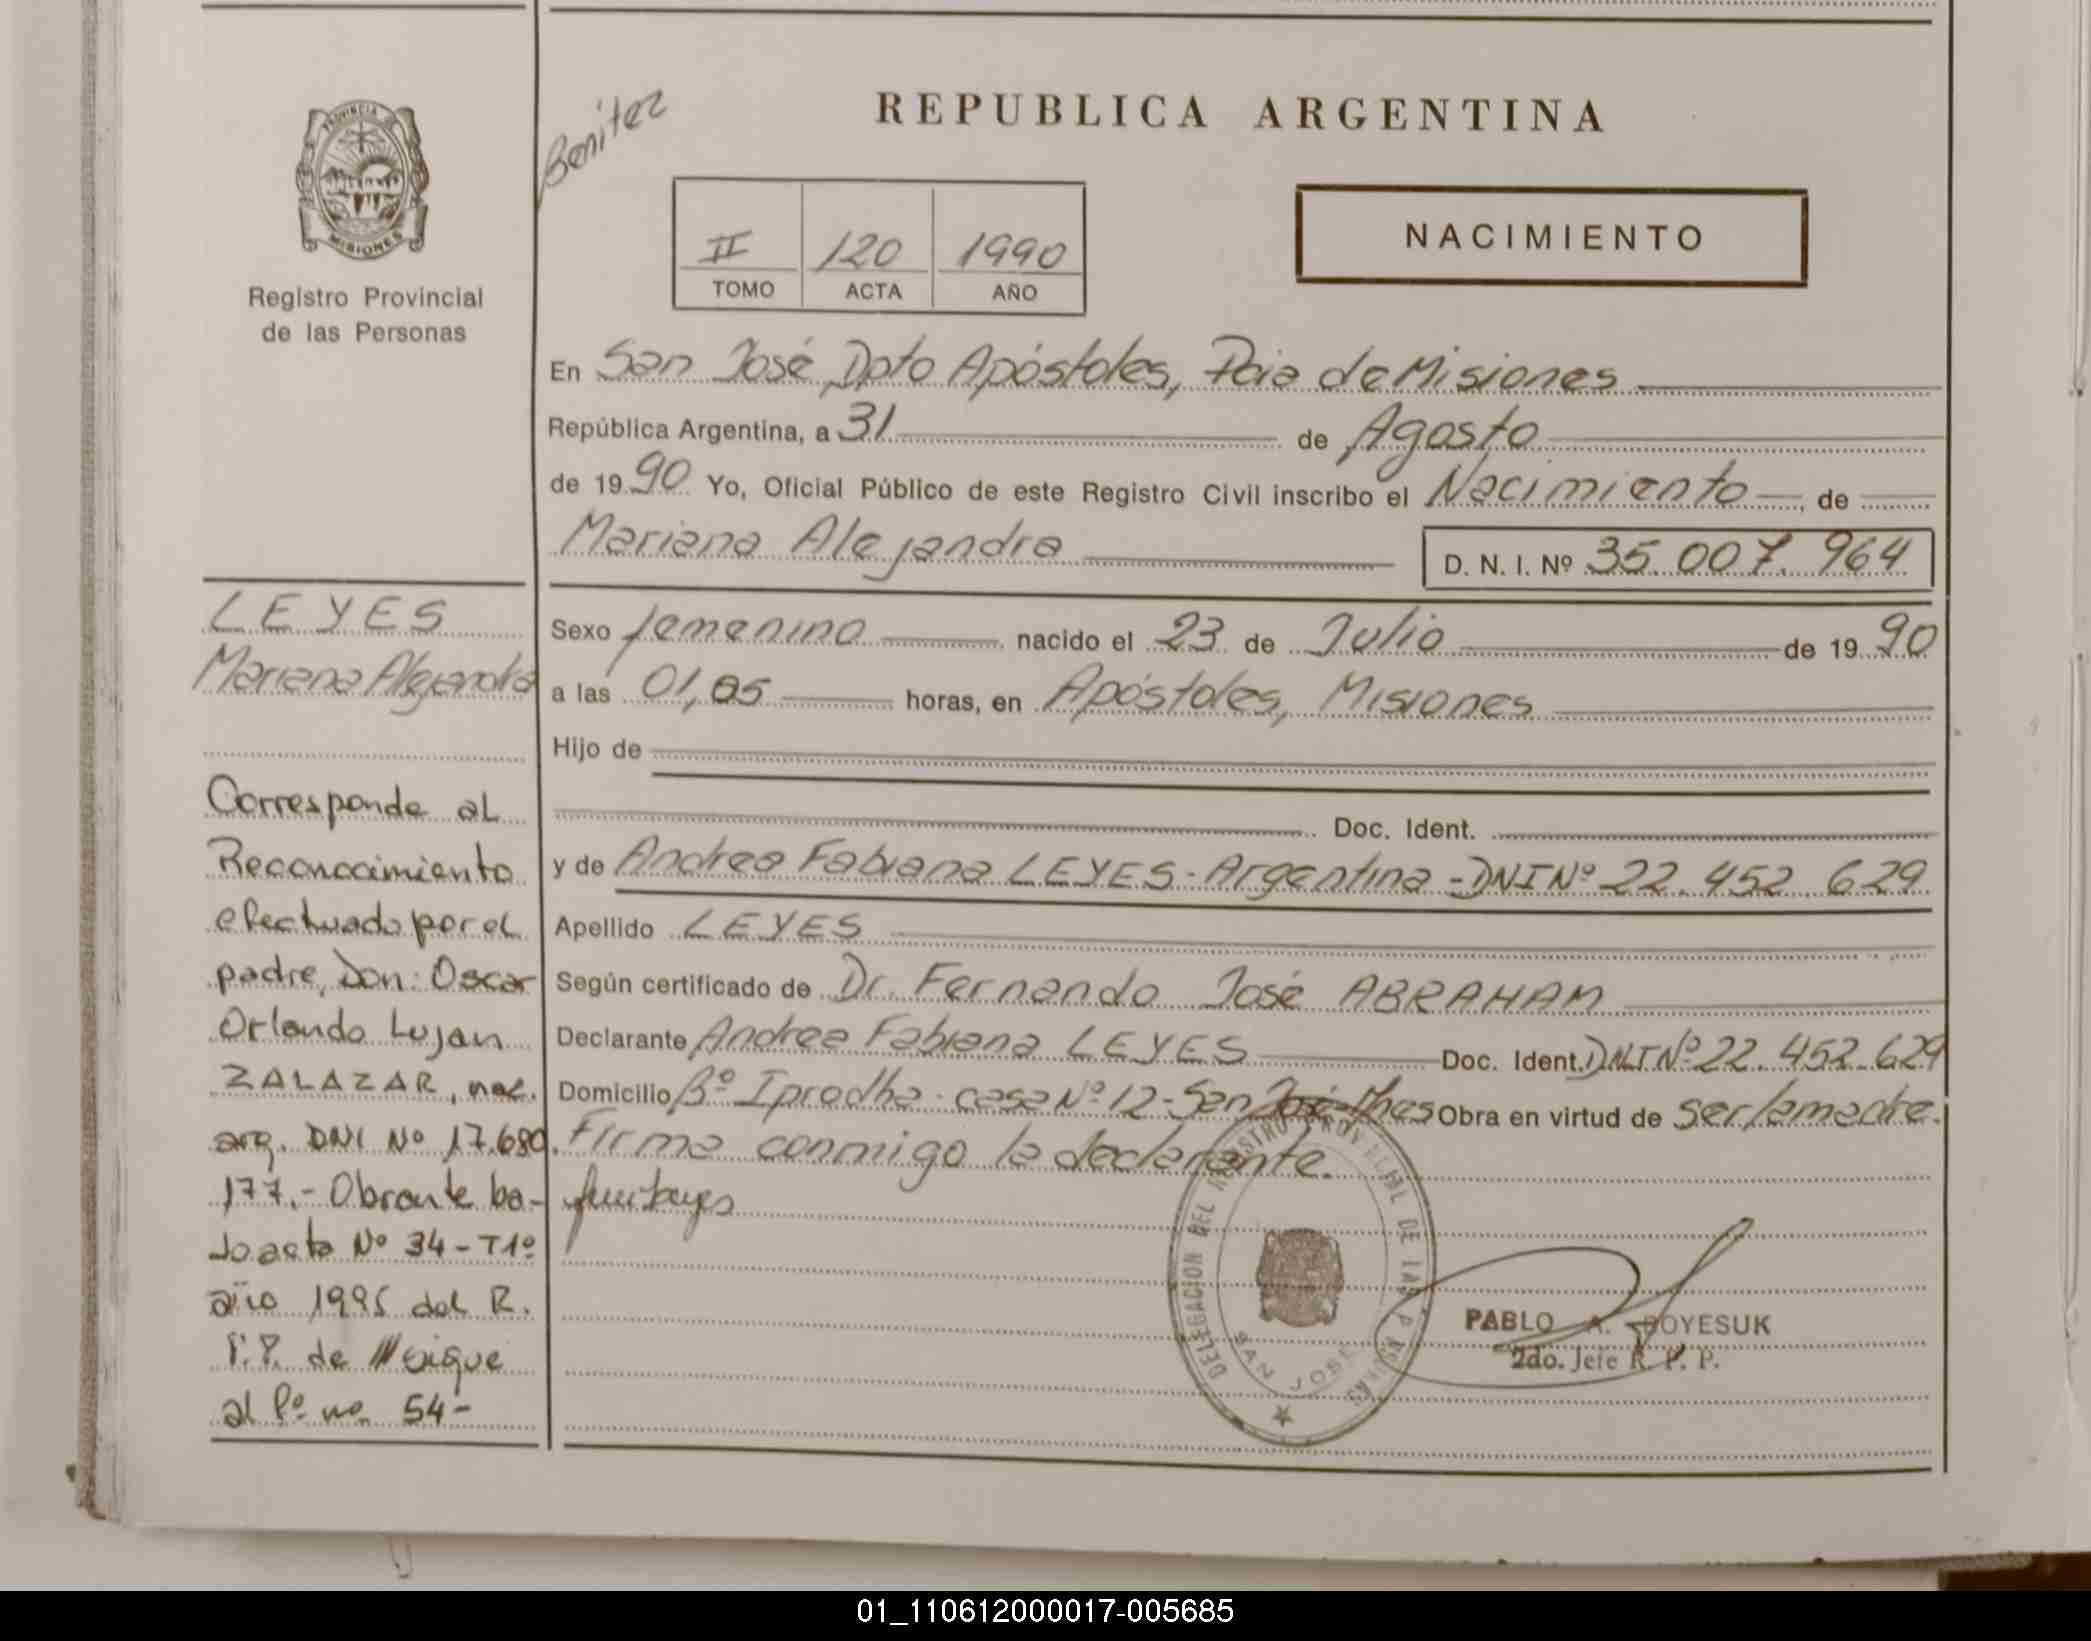 PROVINCIA DE
MISIONES
Registro Provincial
de las Personas
Benitez
REPUBLICA ARGENTINA
II 120 1990
TOMO ACTA AÑO
NACIMIENTO
En San José, Dpto Apóstoles, Pcia de Misiones
República Argentina, a 31 de Agosto
de 1990 Yo, Oficial Público de este Registro Civil inscribo el Nacimiento, de
Mariana Alejandra D. N. I. Nº 35.007.964
Sexo femenino nacido el 23 de Julio de 1990
a las 01,05 horas, en Apóstoles, Misiones
Hijo de
Doc. Ident.
y de Andrea Fabiana LEYES - Argentina - DNI Nº 22.452.629
Apellido LEYES
Según certificado de Dr. Fernando José ABRAHAM
Declarante Andrea Fabiana LEYES Doc. Ident. DNI Nº 22.452.629
Domicilio Bº Iprodha - casa Nº 12 - San José - Mnes Obra en virtud de ser la madre.
Firma conmigo la declarante.
LEYES
Mariana Alejandra
Corresponde al
Reconocimiento
efectuado por el
padre, Don: Oscar
Orlando Lujan
ZALAZAR, nac.
arg. DNI Nº 17.680.
177.- Obrante ba-
jo acta Nº 34 - T1º
año 1995 del R.
P.P. de
al fº nº 54-
DELEGACION DEL REGISTRO PROVINCIAL DE LAS PERSONAS
SAN JOSE
PABLO A. BOYESUK
2do. Jefe R. P. P.
01_110612000017-005685